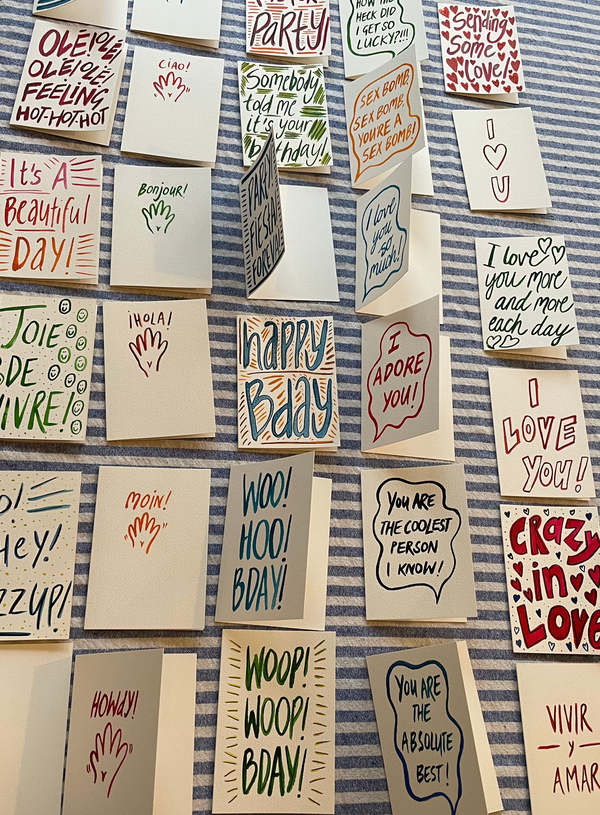 PARTY!
HOW THE
HECK DID
I GET SO
LUCKY?!!!
Sending
Some
Love!
OLÉ!OLÉ!
OLÉ!OLÉ!
FEELING
HOT-HOT-HOT
CIAO!
Somebody
told me
it's your
birthday!
SEX BOMB,
SEX BOMB,
YOU'RE A
SEX BOMB!
I
U
It's A
Beautiful
Day!
BONJOUR!
PARTY
FIESTA
FOREVER
I love
you
so
much!
I love
you more
and more
each day
JOIE
DE
VIVRE!
¡HOLA!
happy
Bday
I
ADORE
YOU!
I
LOVE
YOU!
Hey!
MOIN!
WOO!
HOO!
BDAY!
YOU ARE
THE COOLEST
PERSON
I KNOW!
CRAZY
in
LOVE
HOWDY!
WOOP!
WOOP!
BDAY!
YOU ARE
THE
ABSOLUTE
BEST!
VIVIR
y
AMAR